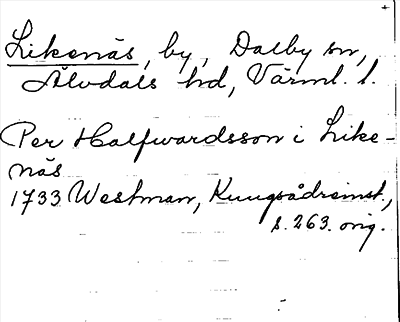 Likenäs, by, Dalby sn,
Älvdals hd, Värml. l.
Per Halfwardsson i Like-
näs
1733 Westman, Kungsådreinst.,
s. 263. orig.